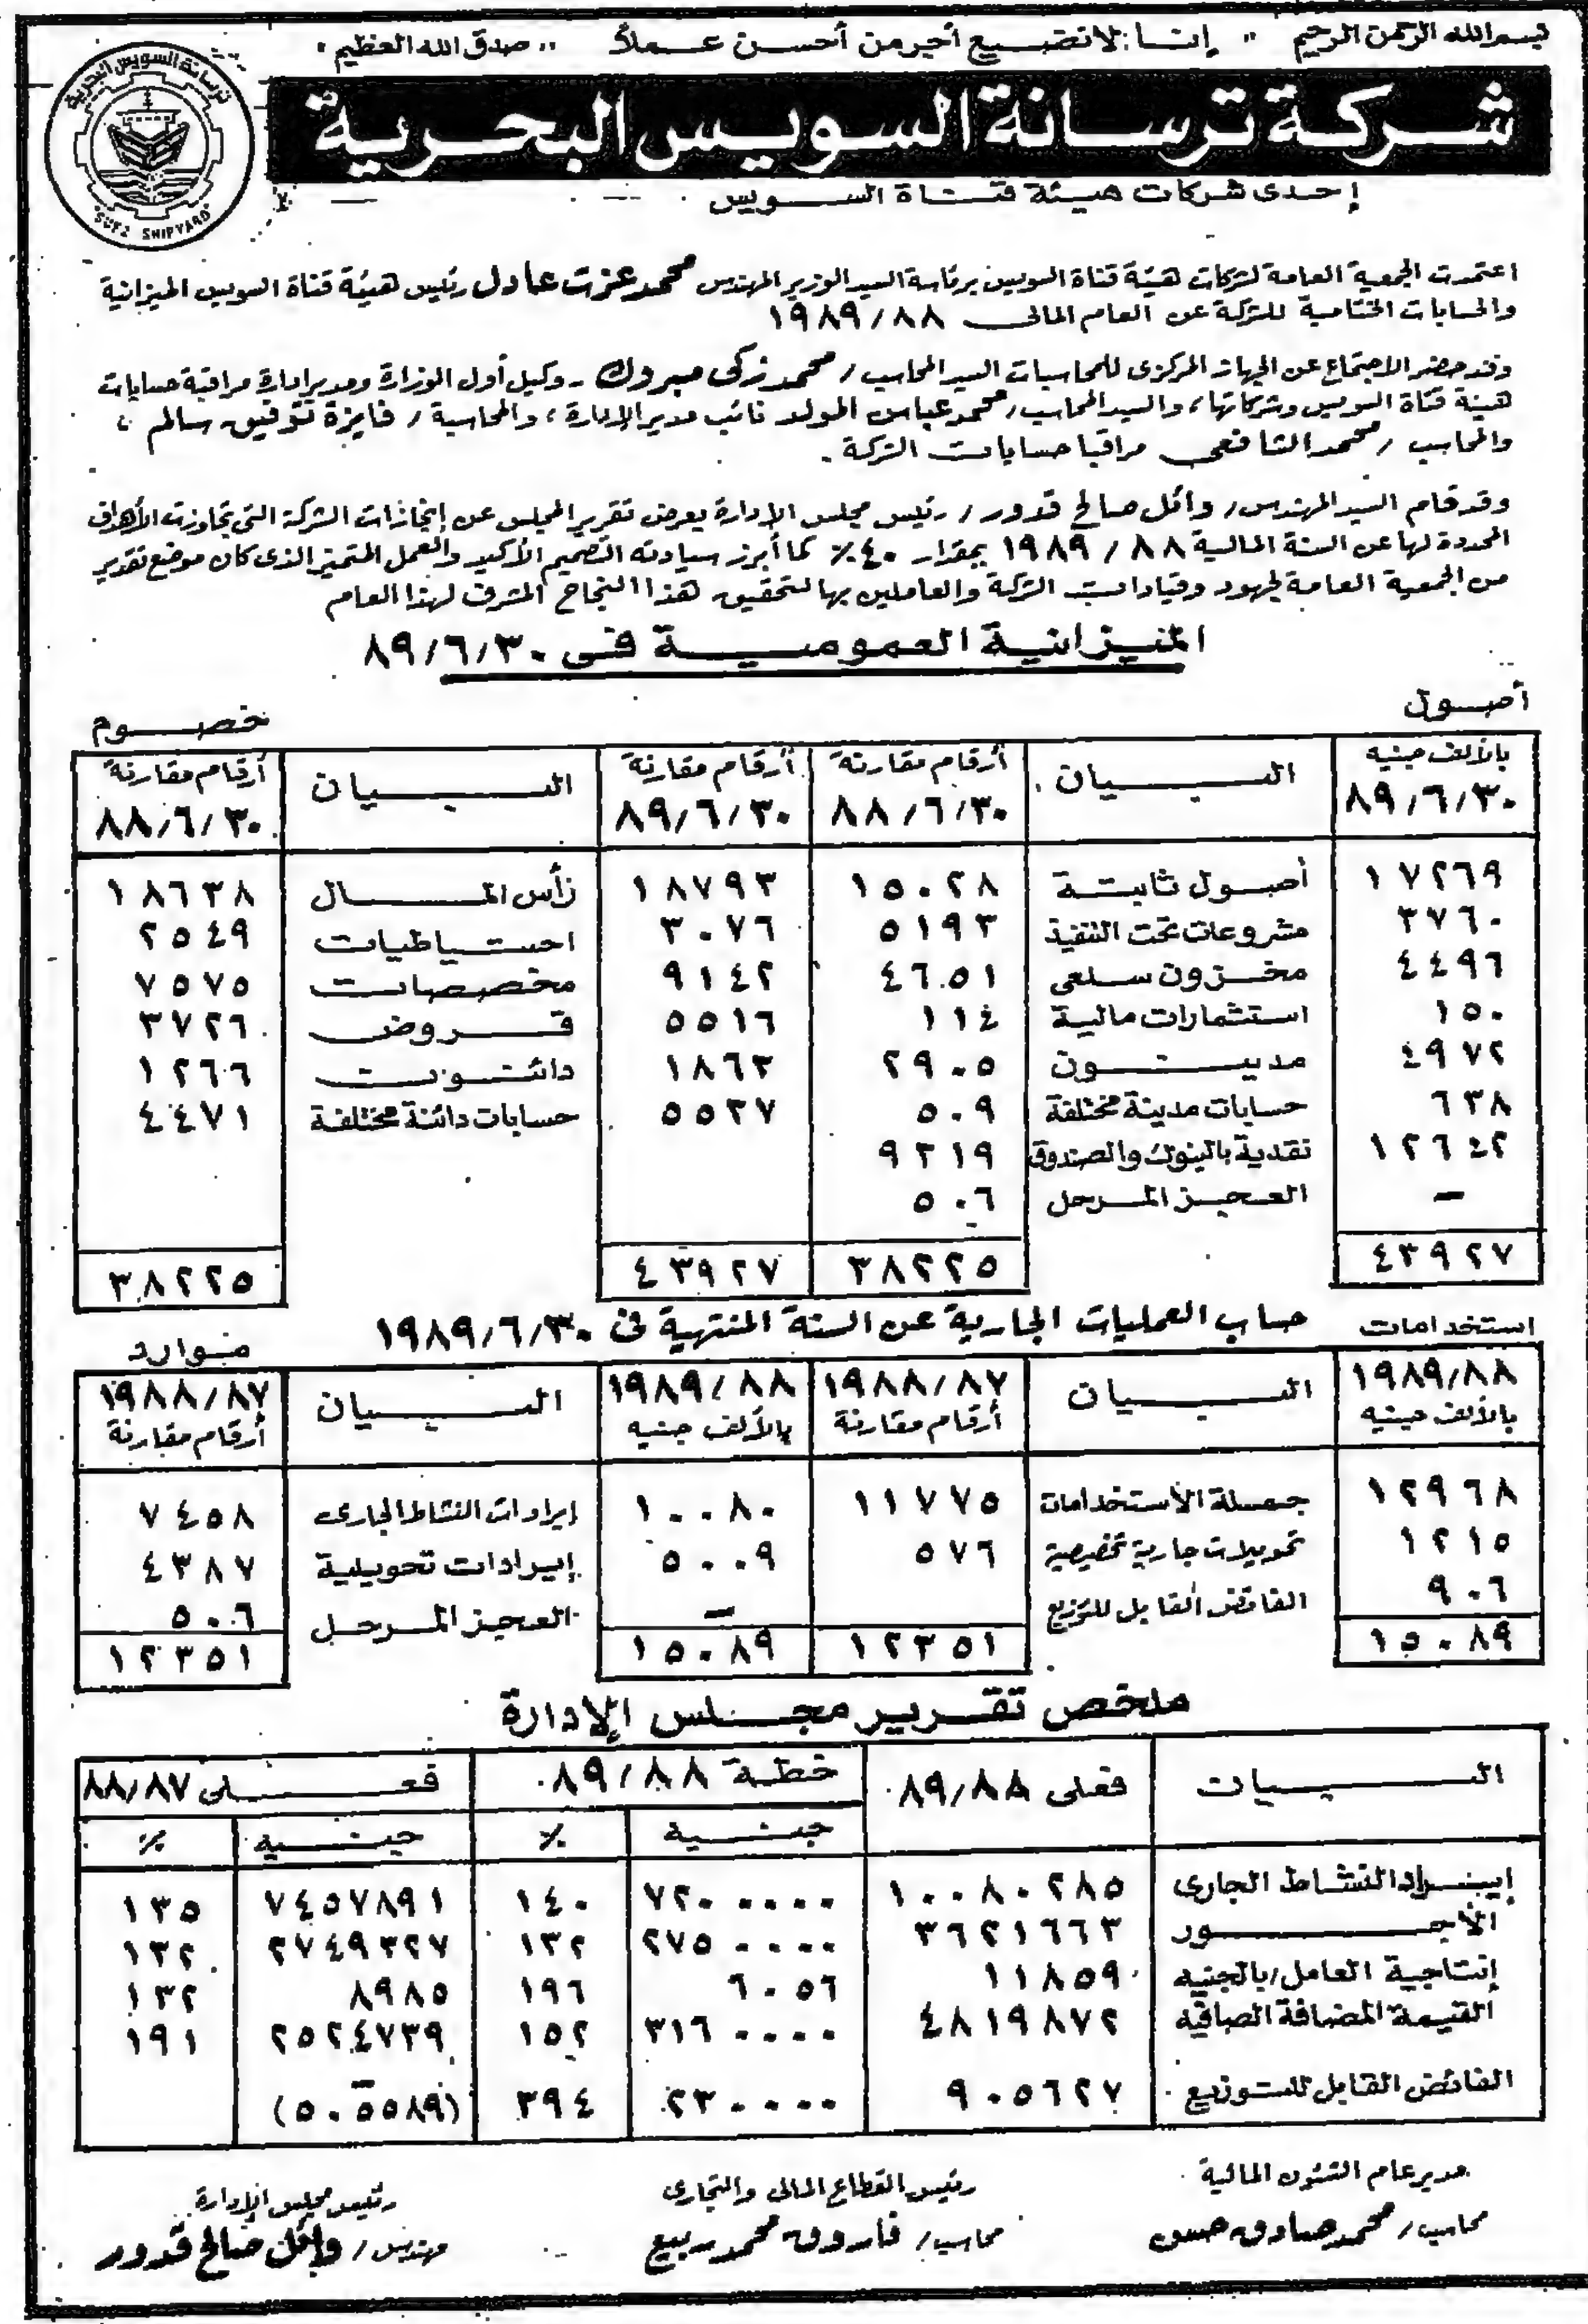 بسم الله الرحمن الرحيم " إنا لا نضيع أجر من أحسن عملاً " صدق الله العظيم
ترسانة السويس البحرية
SUEZ SHIPYARD
شركة ترسانة السويس البحرية
إحدى شركات هيئة قناة السويس
اعتمدت الجمعية العامة لشركات هيئة قناة السويس برئاسة السيد الوزير المهندس محمد عزت عادل رئيس هيئة قناة السويس الميزانية
والحسابات الختامية للشركة عن العام المالى ٨٨ / ١٩٨٩
وقد حضر الاجتماع عن الجهاز المركزى للمحاسبات السيد المحاسب / محمد زكى مبروك - وكيل أول الوزارة ومدير إدارة مراقبة حسابات
هيئة قناة السويس وشركاتها ، والسيد المحاسب / محمد عباس المولد نائب مدير الإدارة ، والمحاسبة / فايزة توفيق سالم ،
والمحاسب / محمد الشافعى مراقبا حسابات الشركة .
وقد قام السيد المهندس / وائل صالح قدور / رئيس مجلس الإدارة بعرض تقرير المجلس عن إنجازات الشركة التى تجاوزت الأهداف
المحددة لها عن السنة المالية ٨٨ / ١٩٨٩ بمقدار ٤٠٪ كما أبرز سيادته التصميم الأكيد والعمل المتميز الذى كان موضع تقدير
من الجمعية العامة لجهود وقيادات الشركة والعاملين بها لتحقيق هذا النجاح المشرف لهذا العام
الميزانية العمومية فى ٨٩/٦/٣٠
أصول خصوم
بالألف جنيه البيان أرقام مقارنة أرقام مقارنة البيان أرقام مقارنة
٨٩/٦/٣٠ ٨٨/٦/٣٠ ٨٩/٦/٣٠ ٨٨/٦/٣٠
١٧٢٦٩ أصول ثابتة ١٥٠٢٨ ١٨٧٩٣ رأس المال ١٨٦٣٨
٣٧٦٠ مشروعات تحت التنفيذ ٥١٩٣ ٣٠٧٦ احتياطيات ٢٥٤٩
٤٤٩٦ مخزون سلعى ٤٦٥١ ٩١٤٢ مخصصات ٧٥٧٥
١٥٠ استثمارات مالية ١١٤ ٥٥١٦ قروض ٣٧٢٦
٤٩٧٢ مدينون ٢٩٠٥ ١٨٦٣ دائنون ١٢٦٦
٦٣٨ حسابات مدينة مختلفة ٥٠٩ ٥٥٣٧ حسابات دائنة مختلفة ٤٤٧١
١٢٦٤٢ نقدية بالبنوك والصندوق ٩٣١٩
— العجز المرحل ٥٠٦
٤٣٩٢٧ ٣٨٢٢٥ ٤٣٩٢٧ ٣٨٢٢٥
حساب العمليات الجارية عن السنة المنتهية فى ١٩٨٩/٦/٣٠
استخدامات موارد
١٩٨٩/٨٨ البيان ١٩٨٨/٨٧ ١٩٨٩/٨٨ البيان ١٩٨٨/٨٧
بالألف جنيه أرقام مقارنة بالألف جنيه أرقام مقارنة
١٢٩٦٨ جملة الأستخدامات ١١٧٧٥ ١٠٠٨٠ إيرادات النشاط الجارى ٧٤٥٨
١٢١٥ تحويلات جارية تخصيصية ٥٧٦ ٥٠٠٩ إيرادات تحويلية ٤٣٨٧
٩٠٦ الفائض القابل للتوزيع — العجز المرحل ٥٠٦
١٥٠٨٩ ١٢٣٥١ ١٥٠٨٩ ١٢٣٥١
ملخص تقرير مجلس الإدارة
البيان فعلى ٨٩/٨٨ خطة ٨٩/٨٨ فعلى ٨٨/٨٧
جنيه ٪ جنيه ٪
إيراد النشاط الجارى ١٠٠٨٠٢٨٥ ٧٢٠٠٠٠٠ ١٤٠ ٧٤٥٧٨٩١ ١٣٥
الأجور ٣٦٢١٦٦٣ ٢٧٥٠٠٠٠ ١٣٢ ٢٧٤٩٣٢٧ ١٣٢
إنتاجية العامل / بالجنيه ١١٨٥٩ ٦٠٥٦ ١٩٦ ٨٩٨٥ ١٣٢
القيمة المضافة الصافيه ٤٨١٩٨٧٢ ٣١٦٠٠٠٠ ١٥٢ ٢٥٢٤٧٣٩ ١٩١
الفائض القابل للتوزيع ٩٠٥٦٢٧ ٢٣٠٠٠٠ ٣٩٤ (٥٠٥٥٨٩)
مدير عام الشئون المالية رئيس القطاع المالى والتجارى رئيس مجلس الإدارة
محاسب / محمد صادق حسن محاسب / فاروق محمد ربيع مهندس / وائل صالح قدور